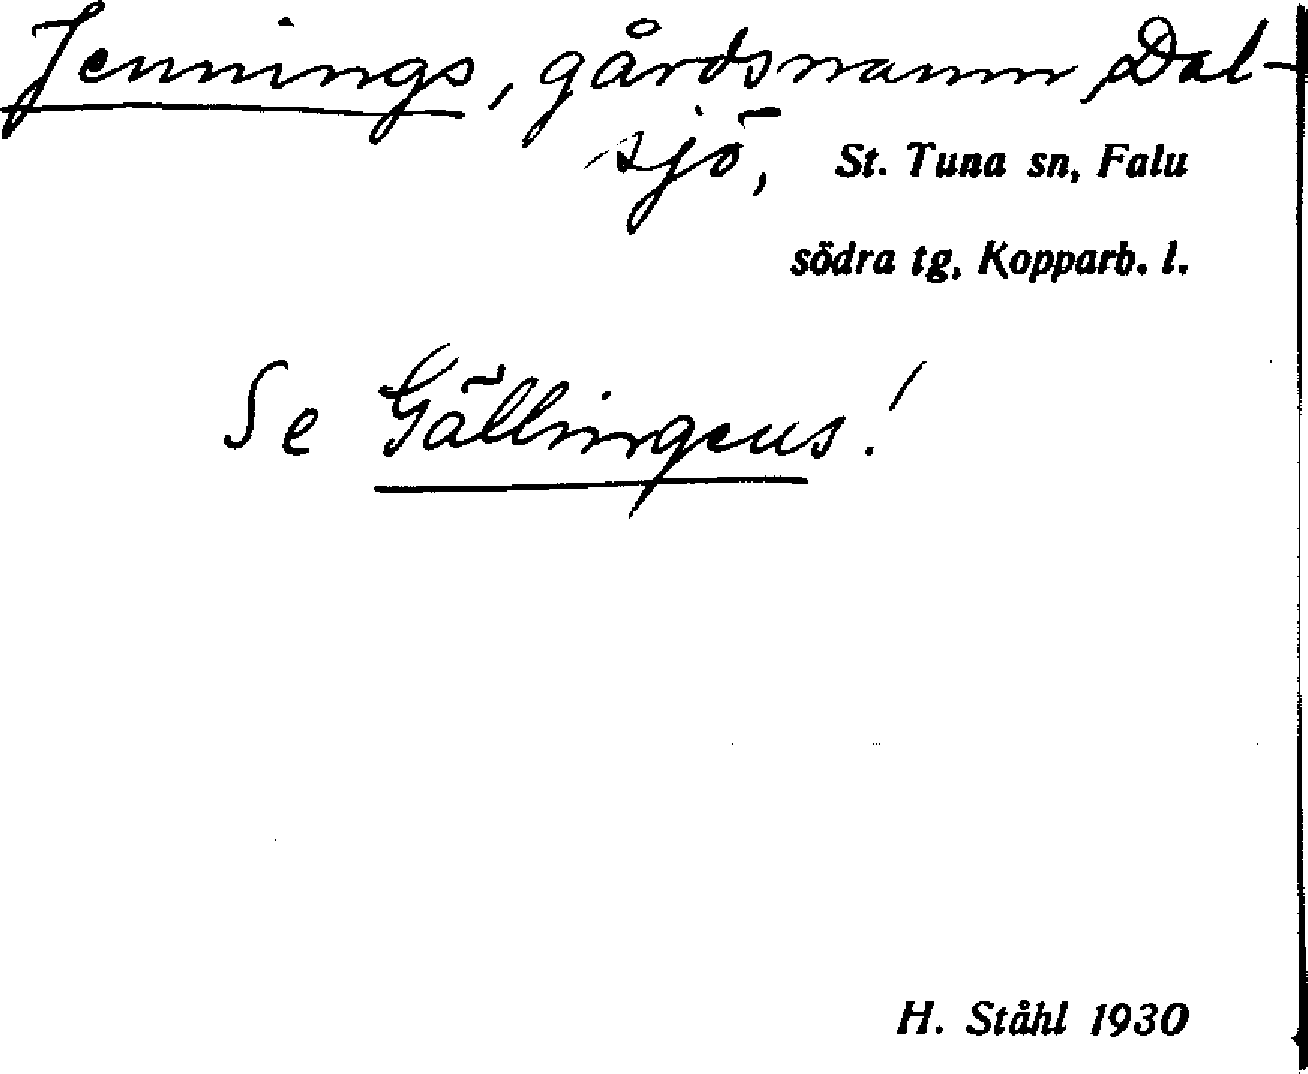 Jennings, gårdsnamn Dal-
sjö, St. Tuna sn, Falu
södra tg, Kopparb. l.
Se Gällingens!
H. Ståhl 1930